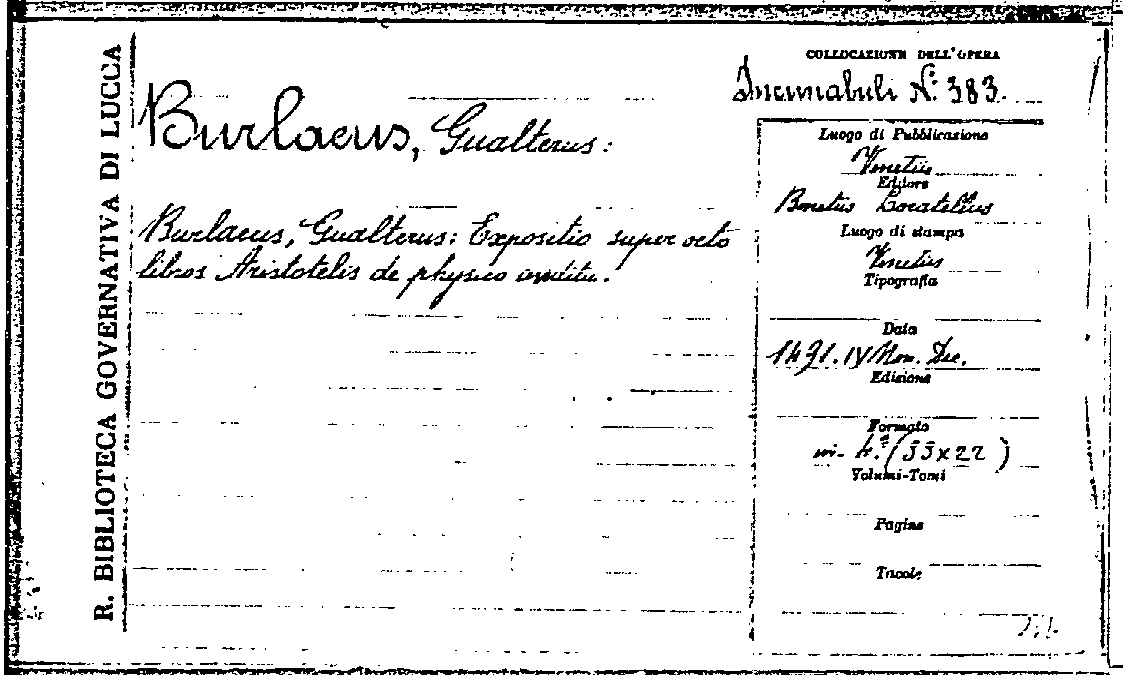 R. BIBLIOTECA GOVERNATIVA DI LUCCA
COLLOCAZIONE DELL'OPERA
Incunabuli N: 383.
Burlaeus, Gualterus:
Burlaeus, Gualterus: Expositio super octo
libros Aristotelis de physico
Luogo di Pubblicazione
Venetiis
Editore
Bonetus Locatellus
Luogo di stampa
Venetiis
Tipografia
Data
1491. IV Non. Dec.
Edizione
Formato
in- 4.° (33x22)
Volumi-Tomi
Pagine
Tavole